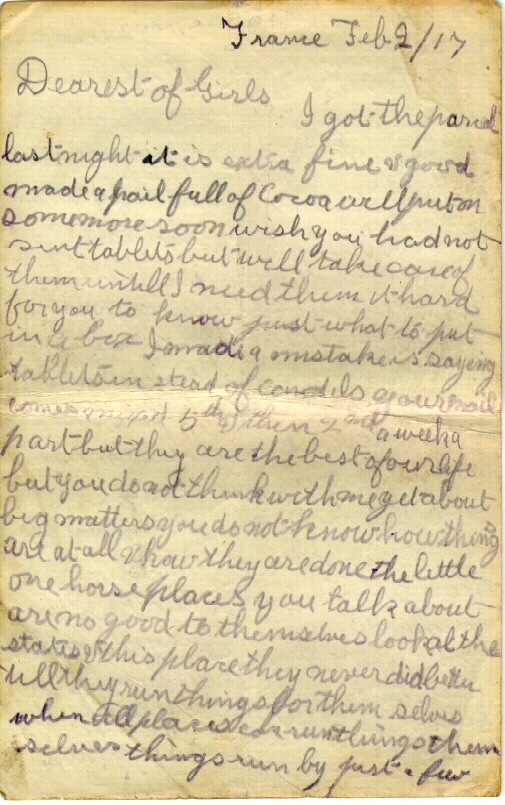 France Feb 2/17
Dearest of Girls
I got the parcel
last night it is extra fine & good
made a pail full of Cocoa will put on
some more soon wish you had not
sent tablets but will take care of
them untill I need them it hard
for you to know just what to put
in a box I made a mistake is saying
tablets in stead of candels your mail
comes mixed 5th & then 2nd a week a
part but they are the best of our life
but you do not think with me yet about
big matters you do not know how things
are at all & how they are done the little
one horse places you talk about
are no good to themselves look at the
states & this place they never did better
till they run things for them selves
when all places can run things them
selves things run by just a few